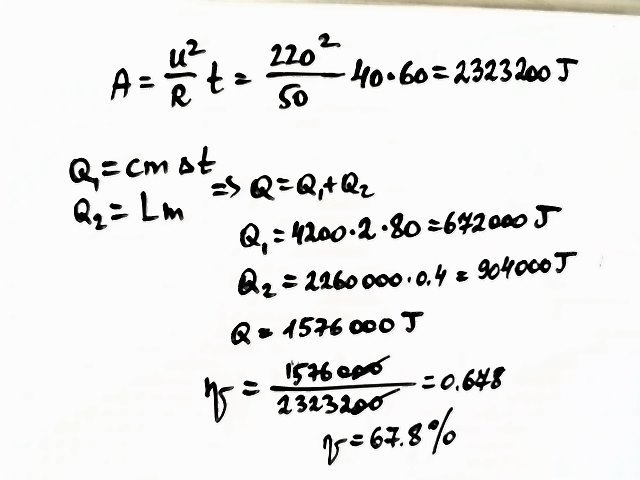 A = u²/R t = 220²/50 40·60 = 2323200 J
Q₁ = cm Δt
Q₂ = Lm => Q = Q₁ + Q₂
Q₁ = 4200·2·80 = 672000 J
Q₂ = 2260000·0.4 = 904000 J
Q = 1576000 J
η = 1576000/2323200 = 0.678
η = 67.8%